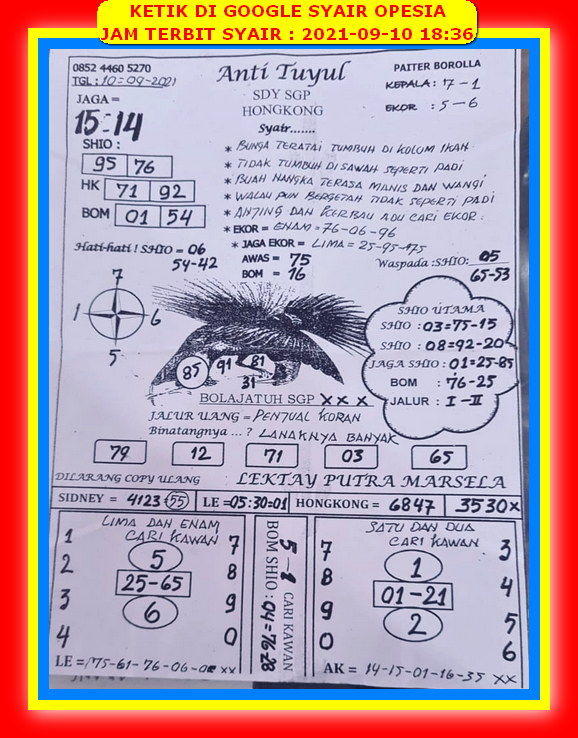 KETIK DI GOOGLE SYAIR OPESIA
JAM TERBIT SYAIR : 2021-09-10 18:36
0852 4460 5270
TGL : 10-09-2021
Anti Tuyul
SDY SGP
HONGKONG
PAITER BOROLLA
KEPALA : 7-1
EKOR : 5-6
JAGA =
15-14
Syair.......
* BUNGA TERATAI TUMBUH DI KOLOM IKAN
* TIDAK TUMBUH DI SAWAH SEPERTI PADI
* BUAH NANGKA TERASA MANIS DAN WANGI
* WALAU PUN BERGETAH TIDAK SEPERTI PADI
* ANJING DAN KERBAU ADU CARI EKOR.
* EKOR = ENAM = 76-06-96
* JAGA EKOR = LIMA = 25-95-75
SHIO :
95 76
HK 71 92
BOM 01 54
Hati-hati ! SHIO = 06
54-42
AWAS = 75
BOM = 16
Waspada :SHIO: 05
65-53
7
1 6
5
85 91 81
31
SHIO UTAMA
SHIO : 03=75-15
SHIO : 08=92-20
JAGA SHIO : 01=25-85
BOM : 76-25
JALUR : I - II
BOLAJATUH SGP X X X
JALUR UANG = PENJUAL KORAN
Binatangnya ... ? LANAKNYA BANYAK
79 12 71 03 65
DILARANG COPY ULANG
LEKTAY PUTRA MARSELA
SIDNEY = 4123 55 LE =05:30=01 HONGKONG = 6847 3530x
LIMA DAN ENAM
CARI KAWAN
1 7
2 5 8
25-65
3 6 9
4 0
LE = 175-61-76-06-0 xx
5-1 CARI KAWAN
BOM SHIO : 04=76-28
SATU DAN DUA
CARI KAWAN
7 3
8 1 4
01-21
9 2 5
0 6
AK = 14-15-01-16-35 xx